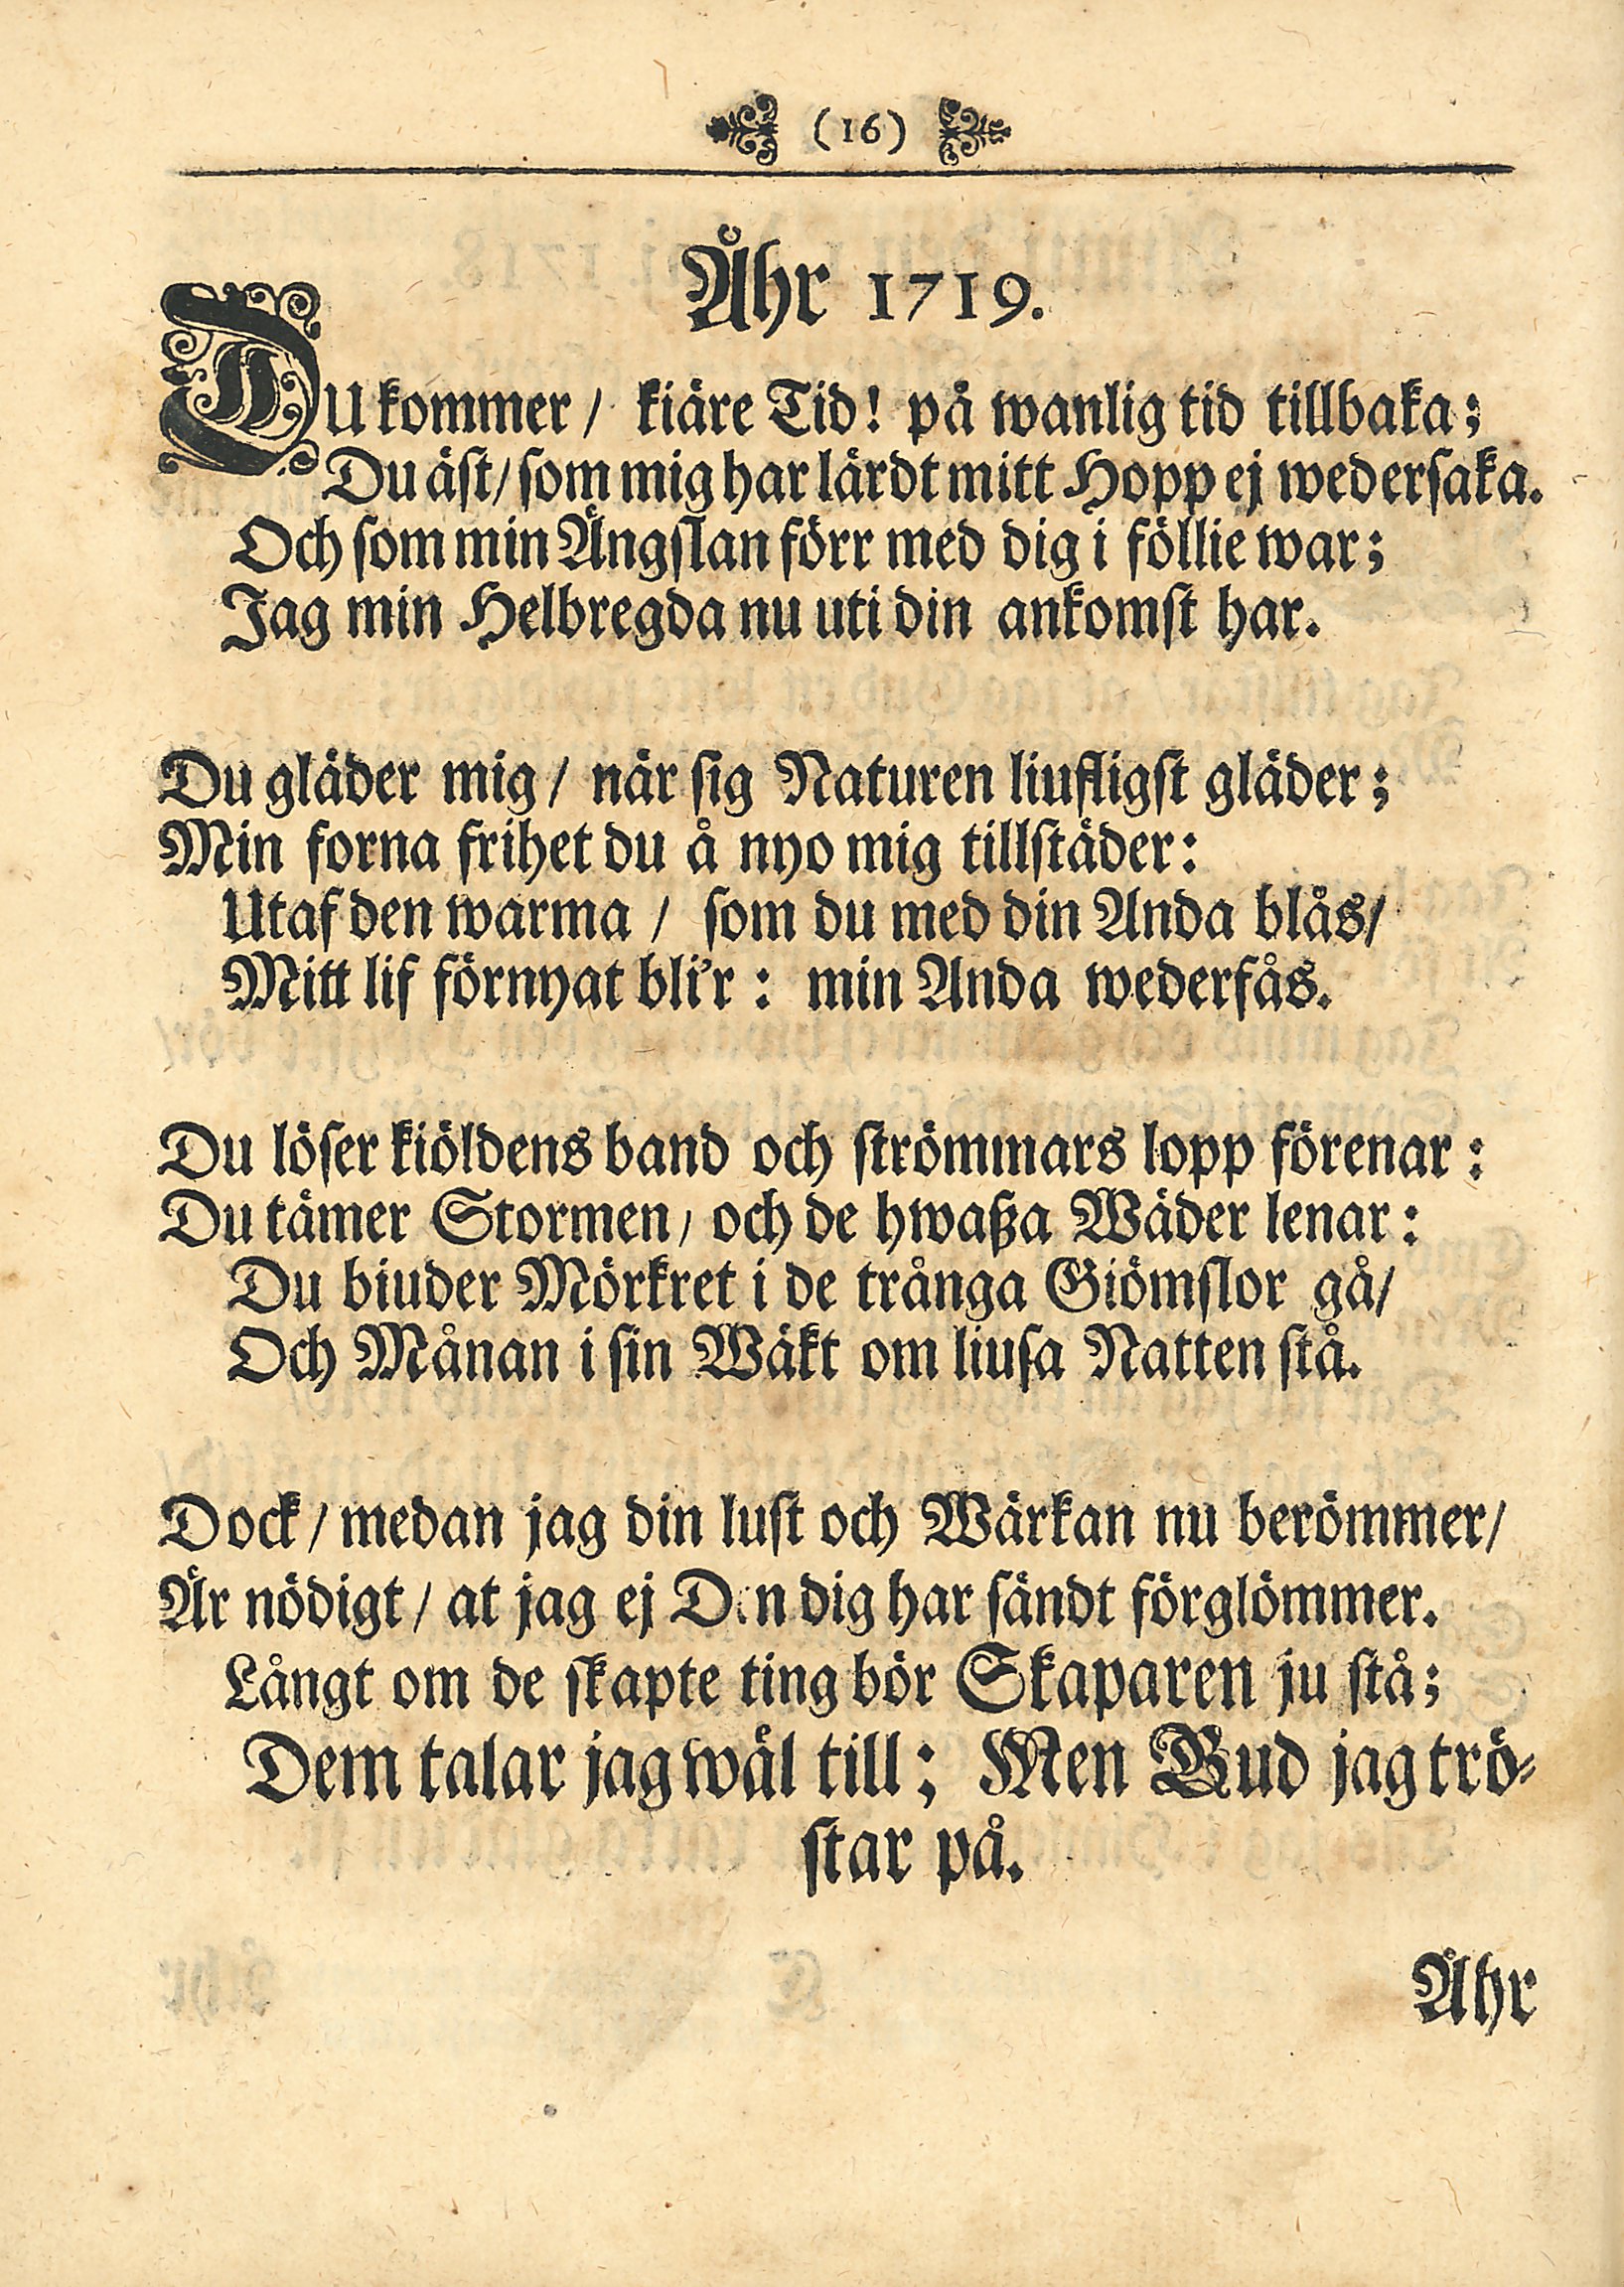 (16)
Åhr 1719.
DU kommer / kiäre Tid! på wanlig tid tillbaka;
Du äst / som mig har lärdt mitt Hopp ej wedersaka.
Och som min Ängslan förr med dig i föllie war;
Jag min Helbregda nu uti din ankomst har.
Du gläder mig / när sig Naturen liufligst gläder;
Min forna frihet du å nyo mig tillstäder:
Utaf den warma / som du med din Anda blås /
Mitt lif förnyat bli'r: min Anda wederfås.
Du löser kiöldens band och strömmars lopp förenar:
Du tämer Stormen / och de hwaßa Wäder lenar:
Du biuder Mörkret i de trånga Giömslor gå /
Och Månan i sin Wäkt om liusa Natten stå.
Dock / medan jag din lust och Wärkan nu berömmer /
Är nödigt / at jag ej Den dig har sändt förglömmer.
Långt om de skapte ting bör Skaparen ju stå;
Dem talar jag wäl till; Men Gud jag trö-
star på.
Åhr